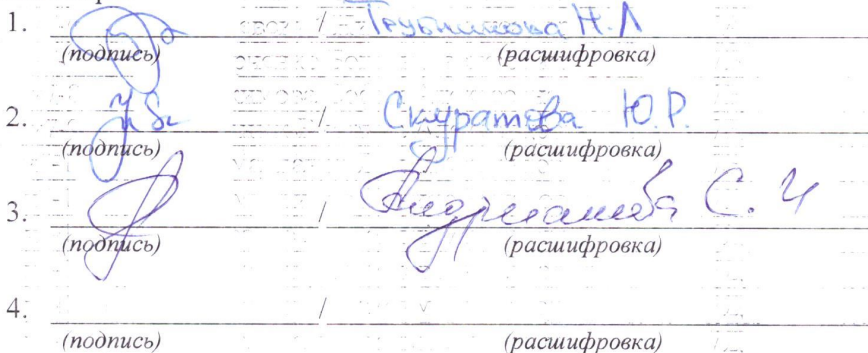 1. / Трубникова Н.Л
(подпись) (расшифровка)
2. / Скуратова Ю.Р.
(подпись) (расшифровка)
3. / Андрианова С. И
(подпись) (расшифровка)
4. /
(подпись) (расшифровка)